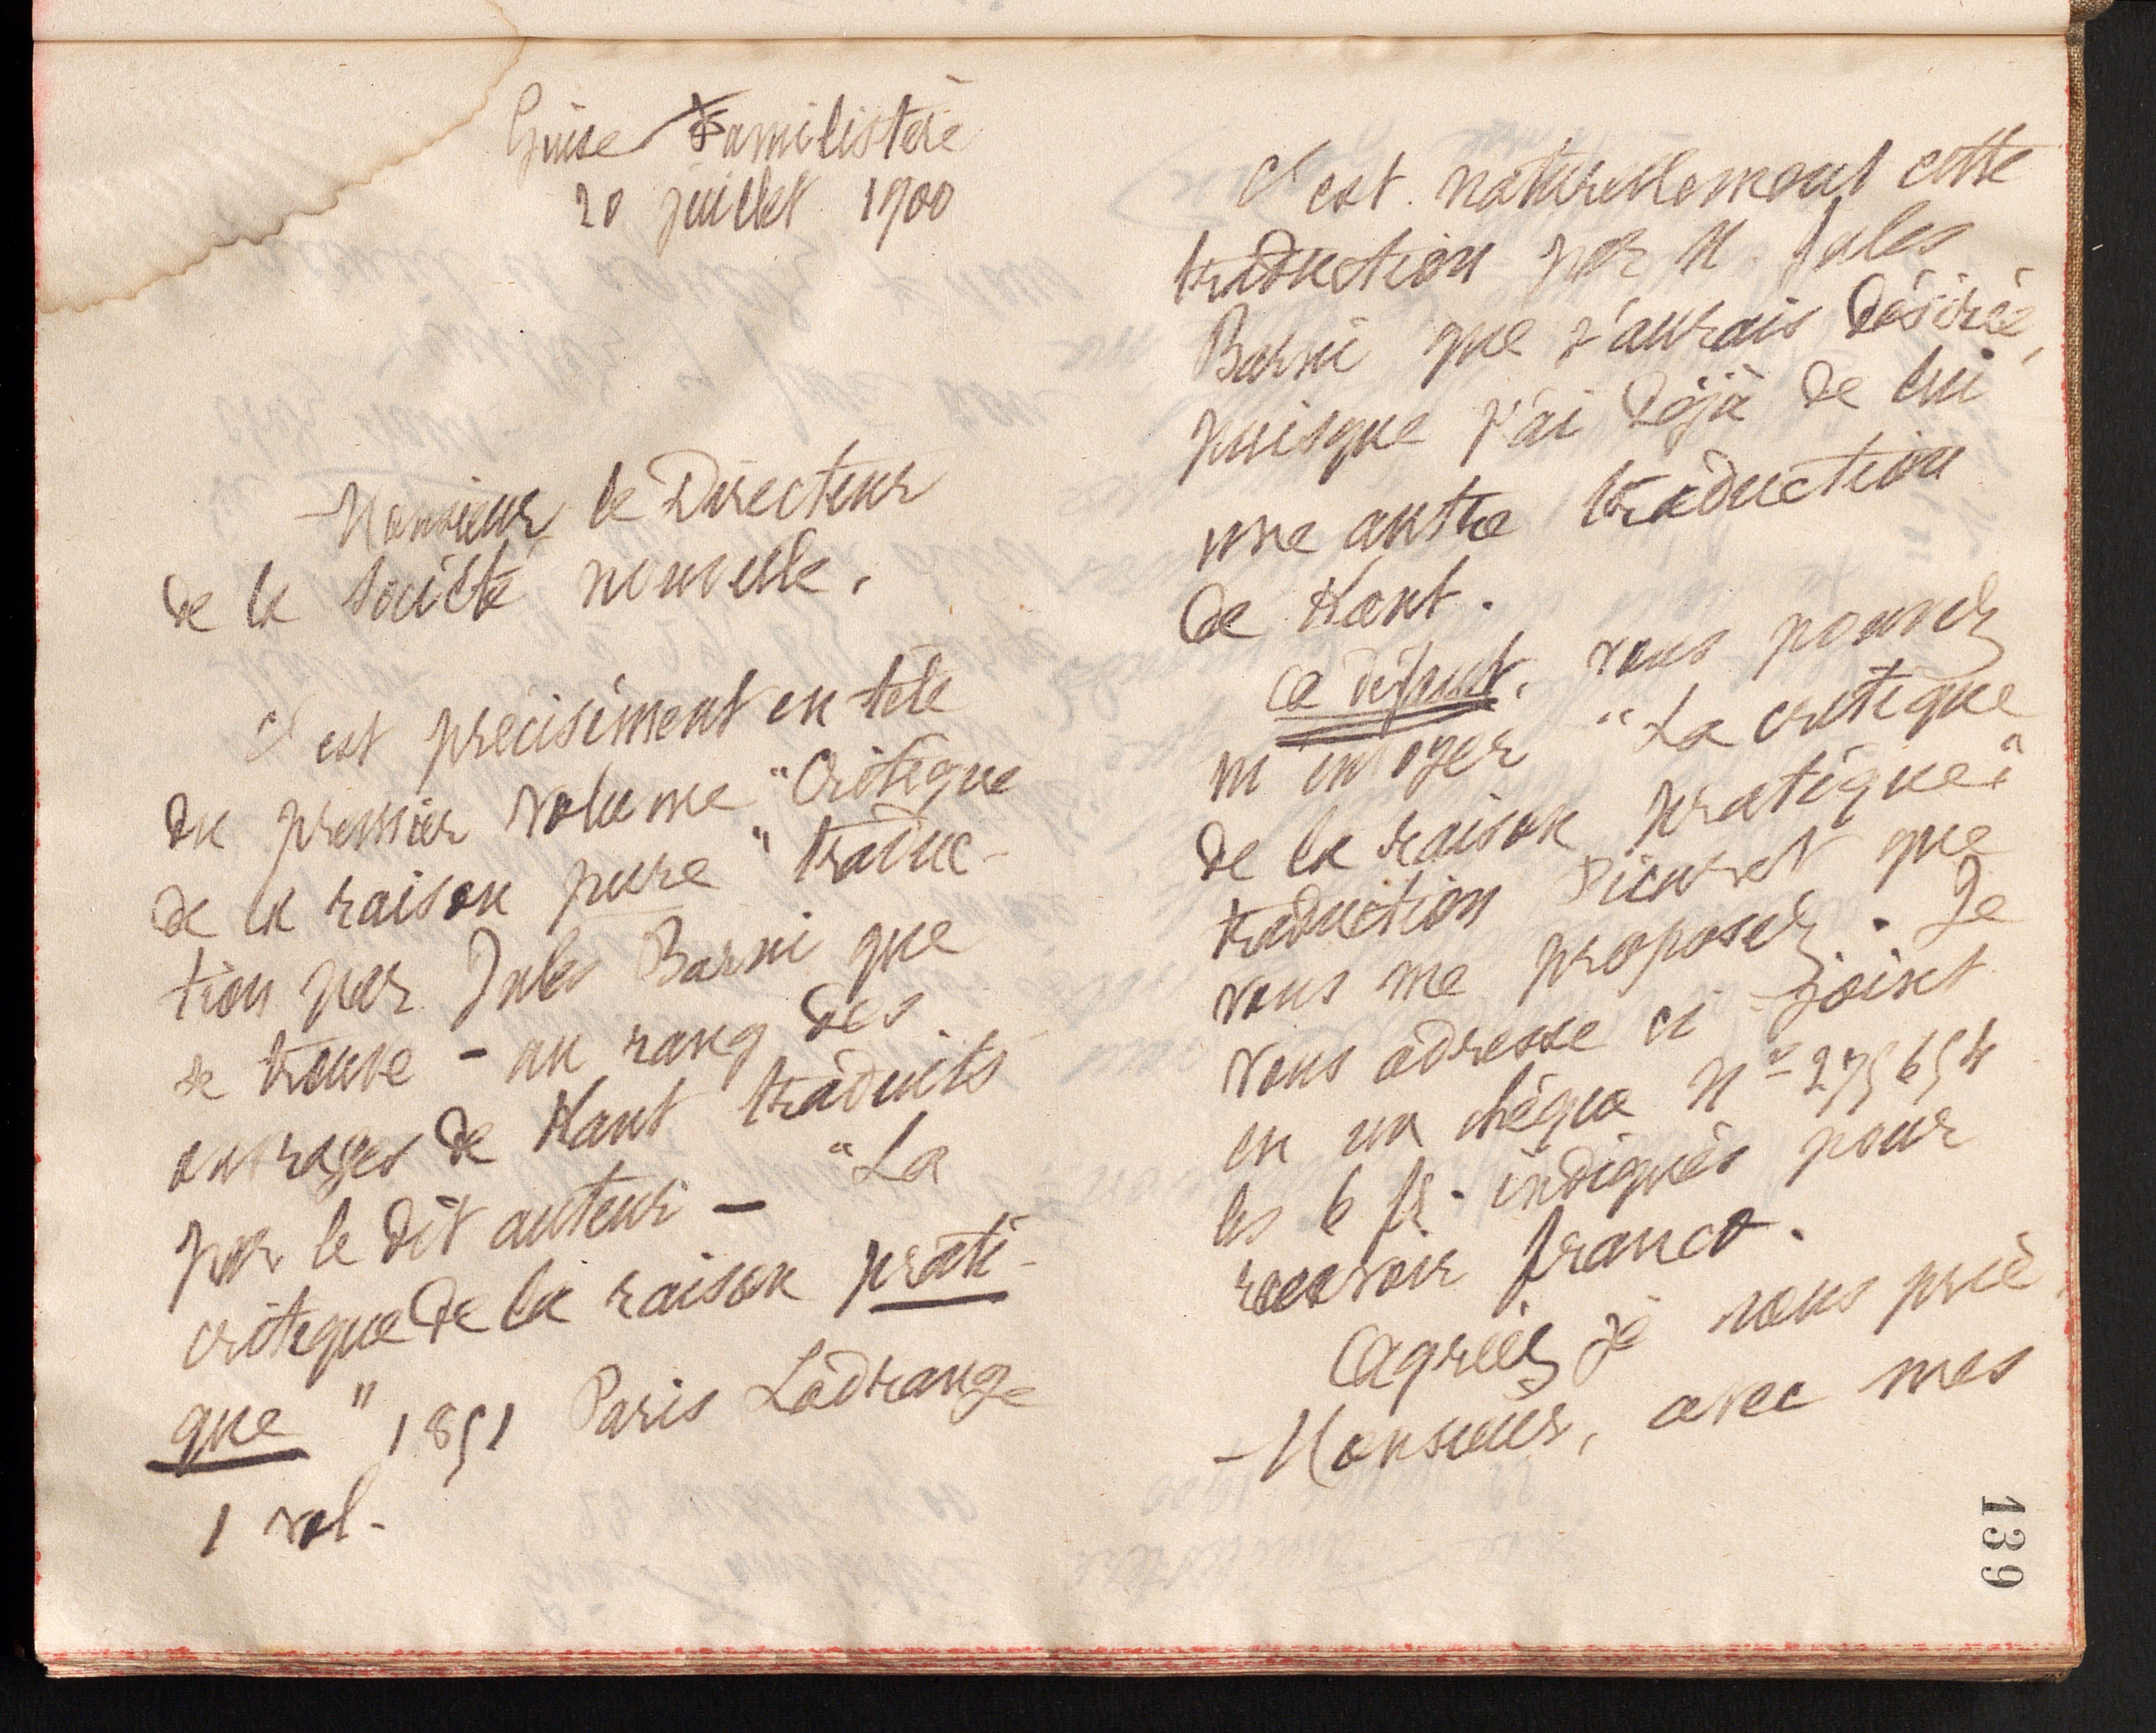 Guise Familistère
20 juillet 1900
Monsieur le Directeur
de la Société nouvelle.
C'est précisément en tête
du premier volume "Critique
de la raison pure" traduc-
tion par Jules Barni que
se trouve - au rang des
ouvrages de Kant traduits
par le dit auteur - "La
critique de la raison prati-
que" 1851 Paris Ladrange
1 vol.
C'est naturellement cette
traduction par M. Jules
Barni que j'aurais désirée,
puisque j'ai déjà de lui
une autre traduction
de Kant.
Ce défaut, vous pouvez
m'envoyer "La critique
de la raison pratique"
traduction Picavet que
vous me proposez. Je
vous adresse ci-joint
en un chèque No 275654
les 6 fr. indiqués pour
recevoir franco.
Agréez, je vous prie
Monsieur, avec mes
139